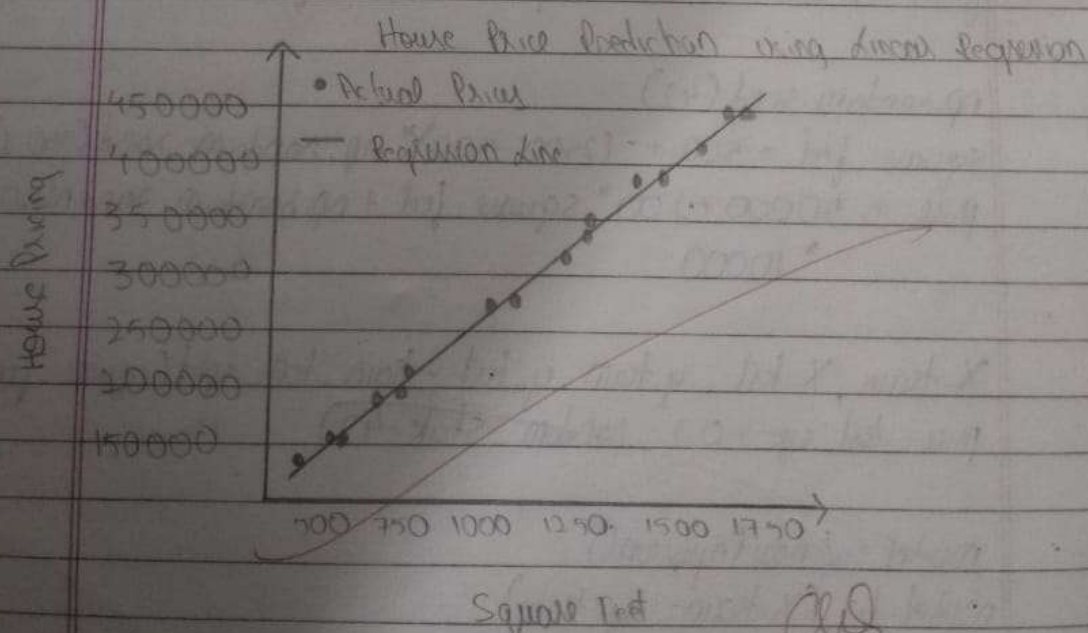 House Price Prediction using Linear Regression
• Actual Prices
— Regression Line
450000
400000
350000
300000
250000
200000
150000
House Pricing
500 750 1000 1250 1500 1750
Square Feet